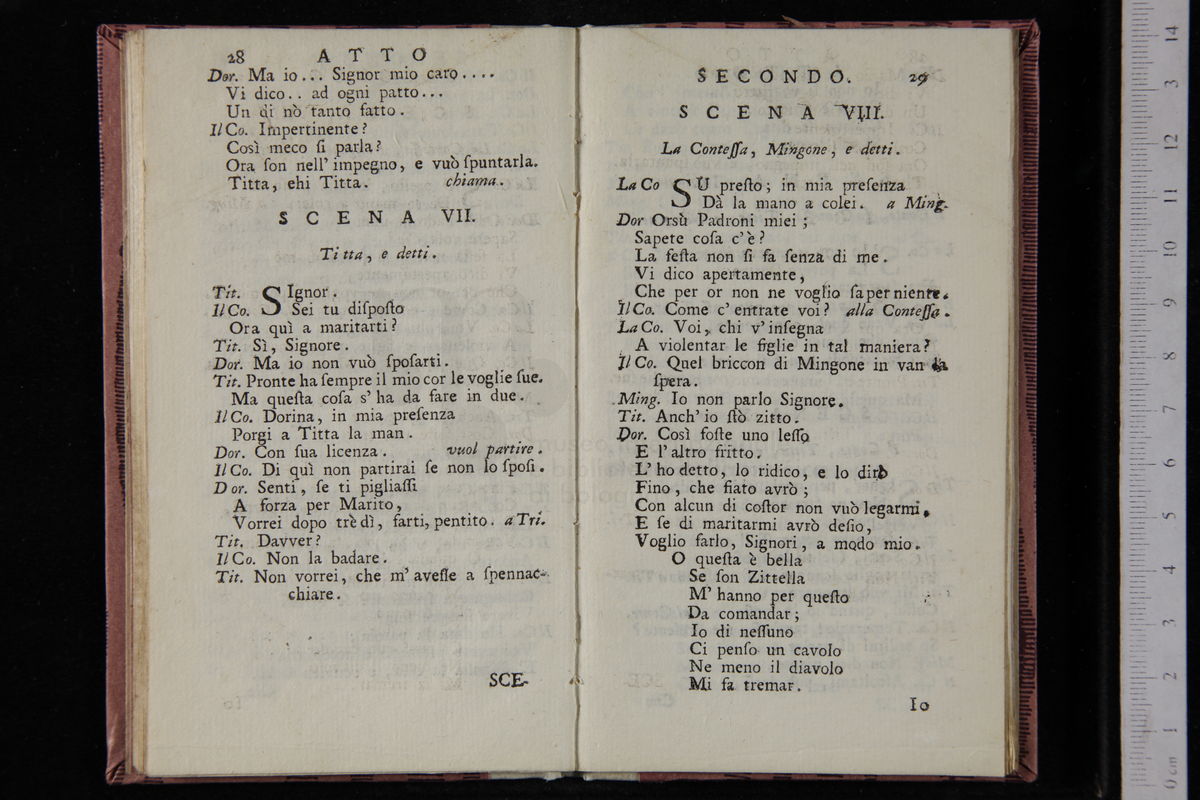 28 ATTO
Dor. Ma io... Signor mio caro....
Vi dico.. ad ogni patto...
Un di nò tanto fatto.
Il Co. Impertinente?
Così meco ſi parla?
Ora ſon nell' impegno, e vuò ſpuntarla.
Titta, ehi Titta. chiama.
SCENA VII.
Titta, e detti.
Tit. SIgnor.
Il Co. Sei tu diſpoſto
Ora quì a maritarti?
Tit. Sì, Signore.
Dor. Ma io non vuò ſpoſarti.
Tit. Pronte ha ſempre il mio cor le voglie ſue.
Ma queſta coſa s' ha da fare in due.
Il Co. Dorina, in mia preſenza
Porgi a Titta la man.
Dor. Con ſua licenza. vuol partire.
Il Co. Di quì non partirai ſe non lo ſpoſi.
Dor. Senti, ſe ti pigliaſſi
A forza per Marito,
Vorrei dopo trè dì, farti, pentito. a Tri.
Tit. Davver?
Il Co. Non la badare.
Tit. Non vorrei, che m' aveſſe a ſpennac-
chiare.
SCE-
SECONDO. 29
SCENA VIII.
La Conteſſa, Mingone, e detti.
La Co SU preſto; in mia preſenza
Dà la mano a colei. a Ming.
Dor Orsù Padroni miei;
Sapete coſa c' è?
La feſta non ſi fa ſenza di me.
Vi dico apertamente,
Che per or non ne voglio ſaper niente.
Il Co. Come c' entrate voi? alla Conteſſa.
La Co. Voi, chi v' inſegna
A violentar le figlie in tal maniera?
Il Co. Quel briccon di Mingone in van la
ſpera.
Ming. Io non parlo Signore.
Tit. Anch' io ſtò zitto.
Dor. Così foſte uno leſſo
E l' altro fritto.
L' ho detto, lo ridico, e lo dirò
Fino, che fiato avrò;
Con alcun di coſtor non vuò legarmi,
E ſe di maritarmi avrò deſio,
Voglio farlo, Signori, a modo mio.
O queſta è bella
Se ſon Zittella
M' hanno per queſto
Da comandar;
Io di neſſuno
Ci penſo un cavolo
Ne meno il diavolo
Mi fa tremar.
Io